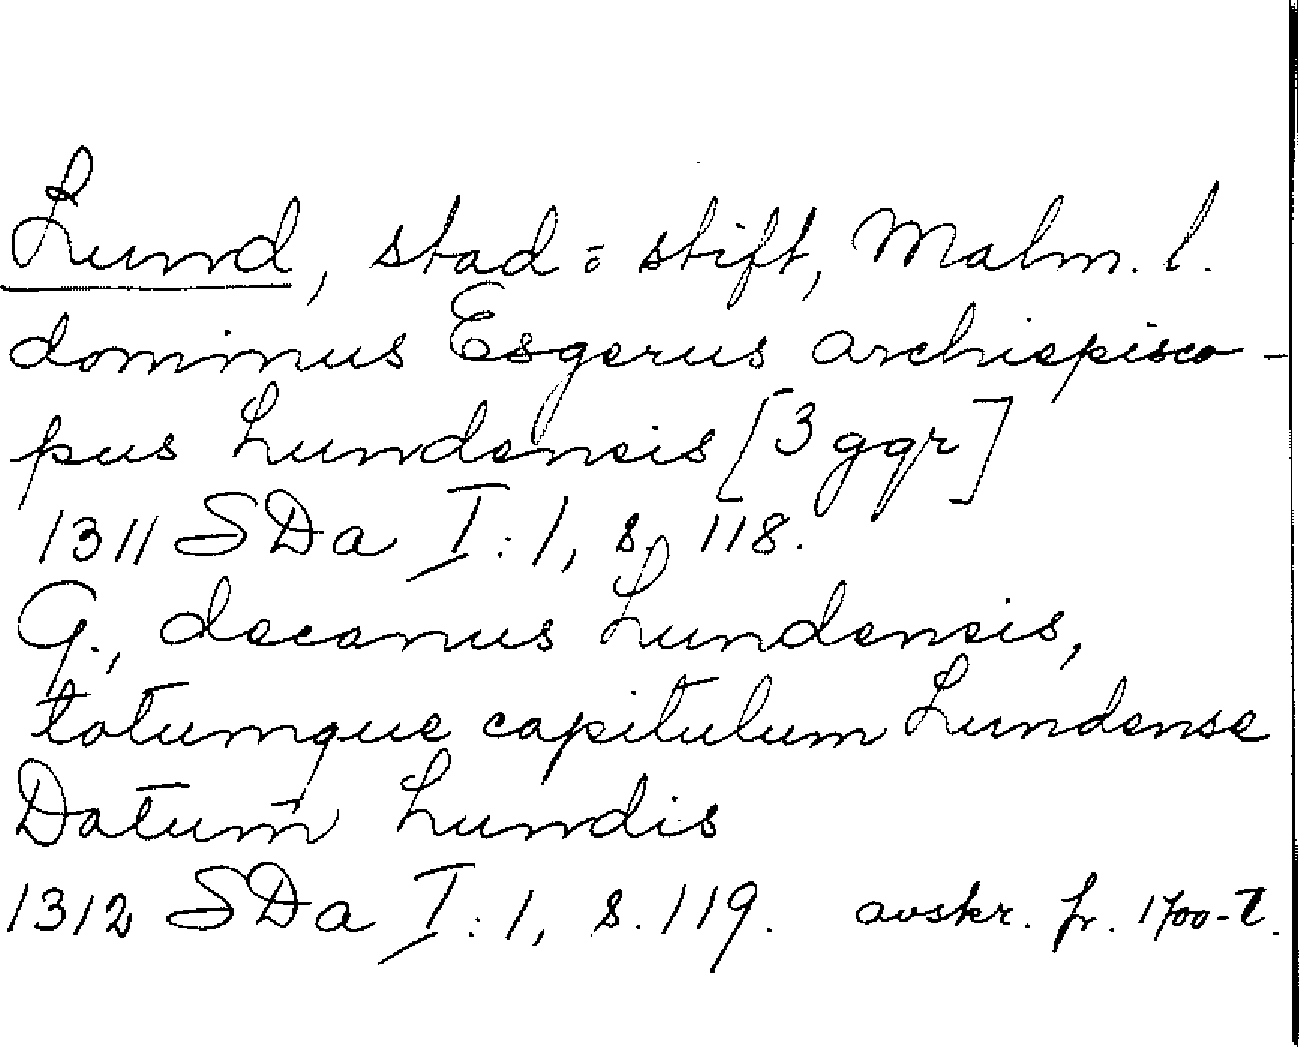 Lund, stad o stift, Malm. l.
dominus Esgerus archiepisco-
pus Lundensis [3 ggr]
1311 SDa I:1, s. 118.
G., decanus Lundensis,
totumque capitulum Lundense
Datum Lundis
1312 SDa I:1, s. 119. avskr. fr. 1700-t.